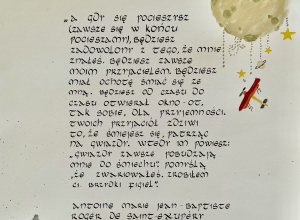 „A GDY SIĘ POCIESZYSZ
(ZAWSZE SIĘ W KOŃCU
POCIESZAMY), BĘDZIESZ
ZADOWOLONY Z TEGO, ŻE MNIE
ZNAŁEŚ. BĘDZIESZ ZAWSZE
MOIM PRZYJACIELEM. BĘDZIESZ
MIAŁ OCHOTĘ ŚMIAĆ SIĘ ZE
MNĄ. BĘDZIESZ OD CZASU DO
CZASU OTWIERAŁ OKNO - OT,
TAK SOBIE, DLA PRZYJEMNOŚCI.
TWOICH PRZYJACIÓŁ ZDZIWI
TO, ŻE ŚMIEJESZ SIĘ, PATRZĄC
NA GWIAZDY. WTEDY IM POWIESZ:
„GWIAZDY ZAWSZE POBUDZAJĄ
MNIE DO ŚMIECHU". POMYŚLĄ,
ŻE ZWARIOWAŁEŚ. ZROBIŁEM
CI BRZYDKI FIGIEL".
ANTOINE MARIE JEAN-BAPTISTE
ROGER DE SAINT-EXUPÉRY